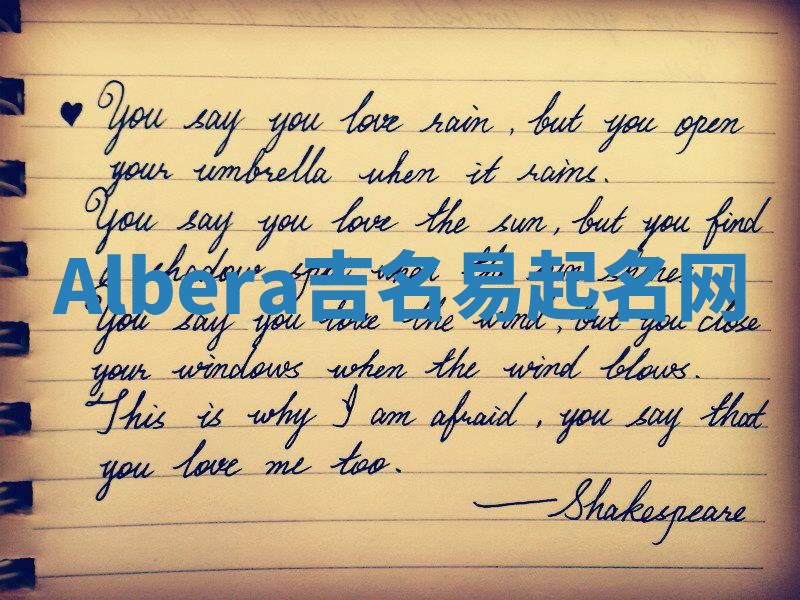 ♥ You say you love rain, but you open
your umbrella when it rains.
You say you love the sun, but you find
a shadow spot when the sun shines.
Albera吉名易起名网
You say you love the wind, but you close
your windows when the wind blows.
This is why I am afraid, you say that
you love me too.
—Shakespeare